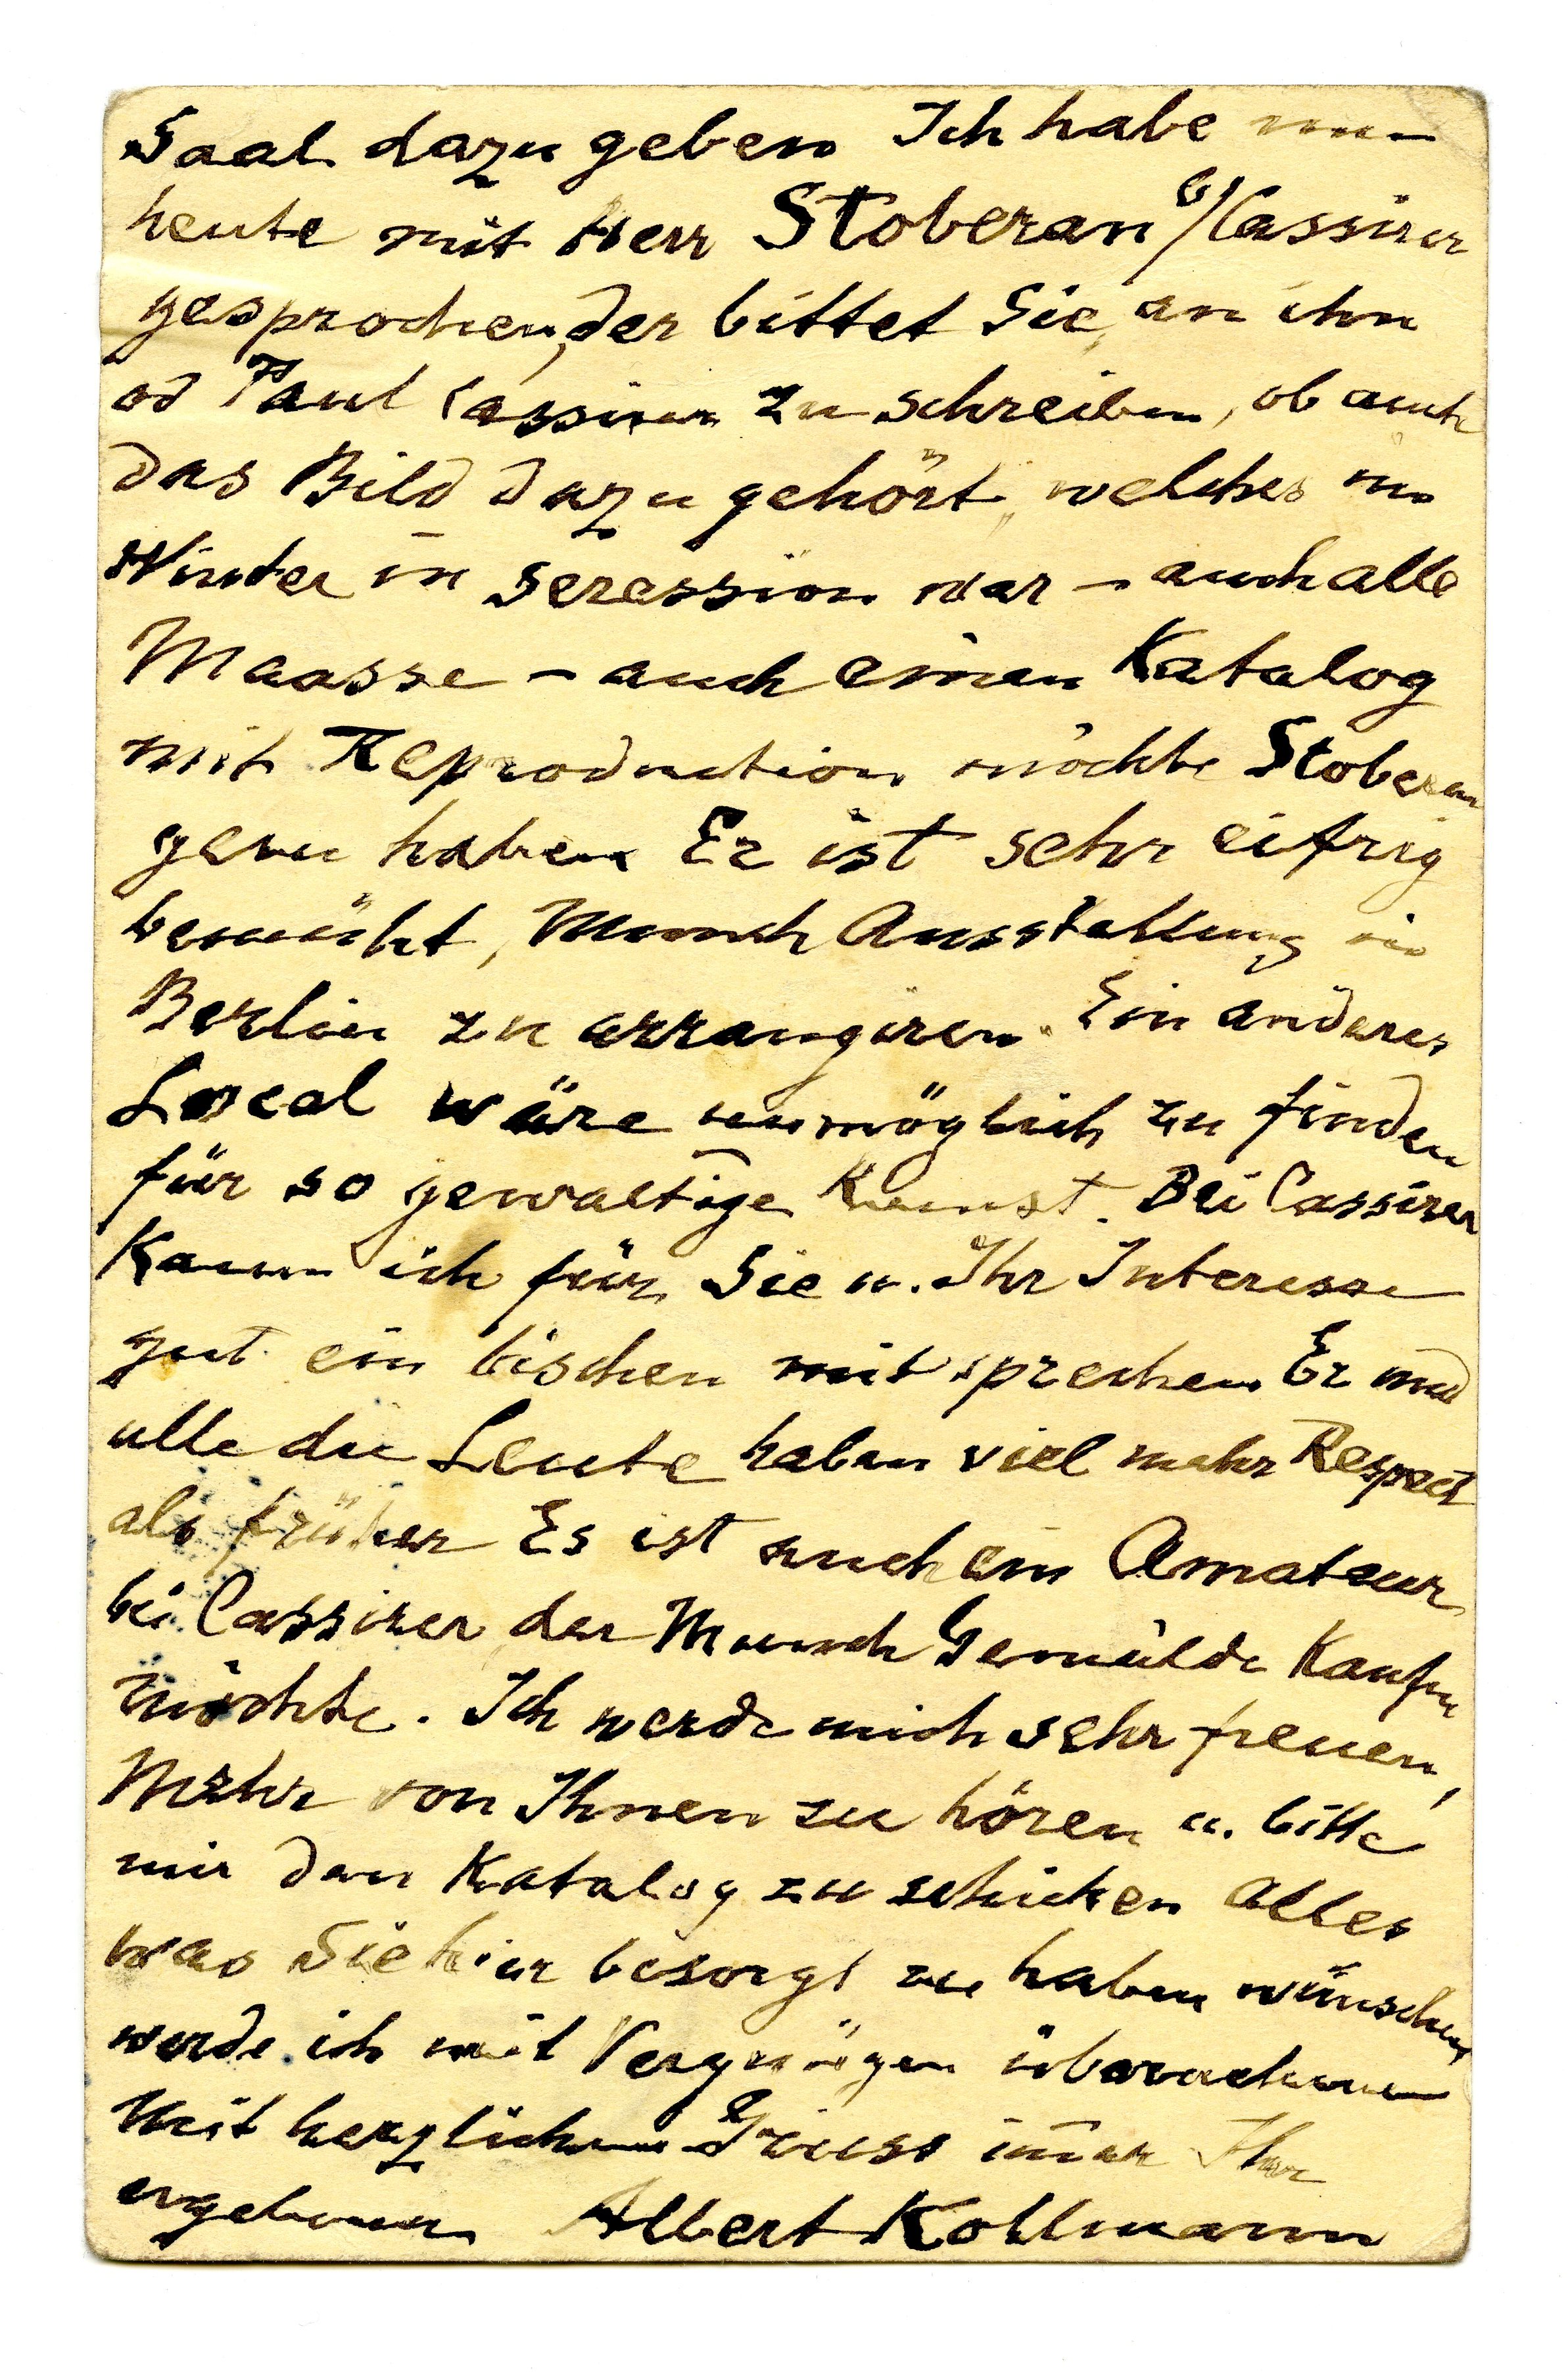 Saal dazu geben Ich habe nun
heute mit Herr Stoberan b/Cassirer
gesprochen, der bittet Sie, an ihn
od Paul Cassirer zu schreiben, ob auch
das Bild dazu gehört, welches im
Winter in Secession war – auch alle
Maasse – auch einen Katalog
mit Reproduction möchte Stoberan
gern haben Er ist sehr eifrig
bemüht, Munch Ausstellung in
Berlin zu arrangiren. Ein anderes
Local wäre unmöglich zu finden
für so gewaltige Kunst. Bei Cassirer
Kann ich für Sie u. Ihr Interesse
gut ein bischen mitsprechen Er und
alle die Leute haben viel mehr Respect
als früher Es ist auch ein Amateur
bei Cassirer der Munch Gemälde Kaufen
möchte. Ich werde mich sehr freuen,
Mehr von Ihnen zu hören u. bitte
mir den Katalog zu schicken Alles
was Sie hier besorgt zu haben wünschen
werde ich mit Vergnügen übernehmen
Mit herzlichem Gruss im̅er Ihr
ergebener Albert Kollmann